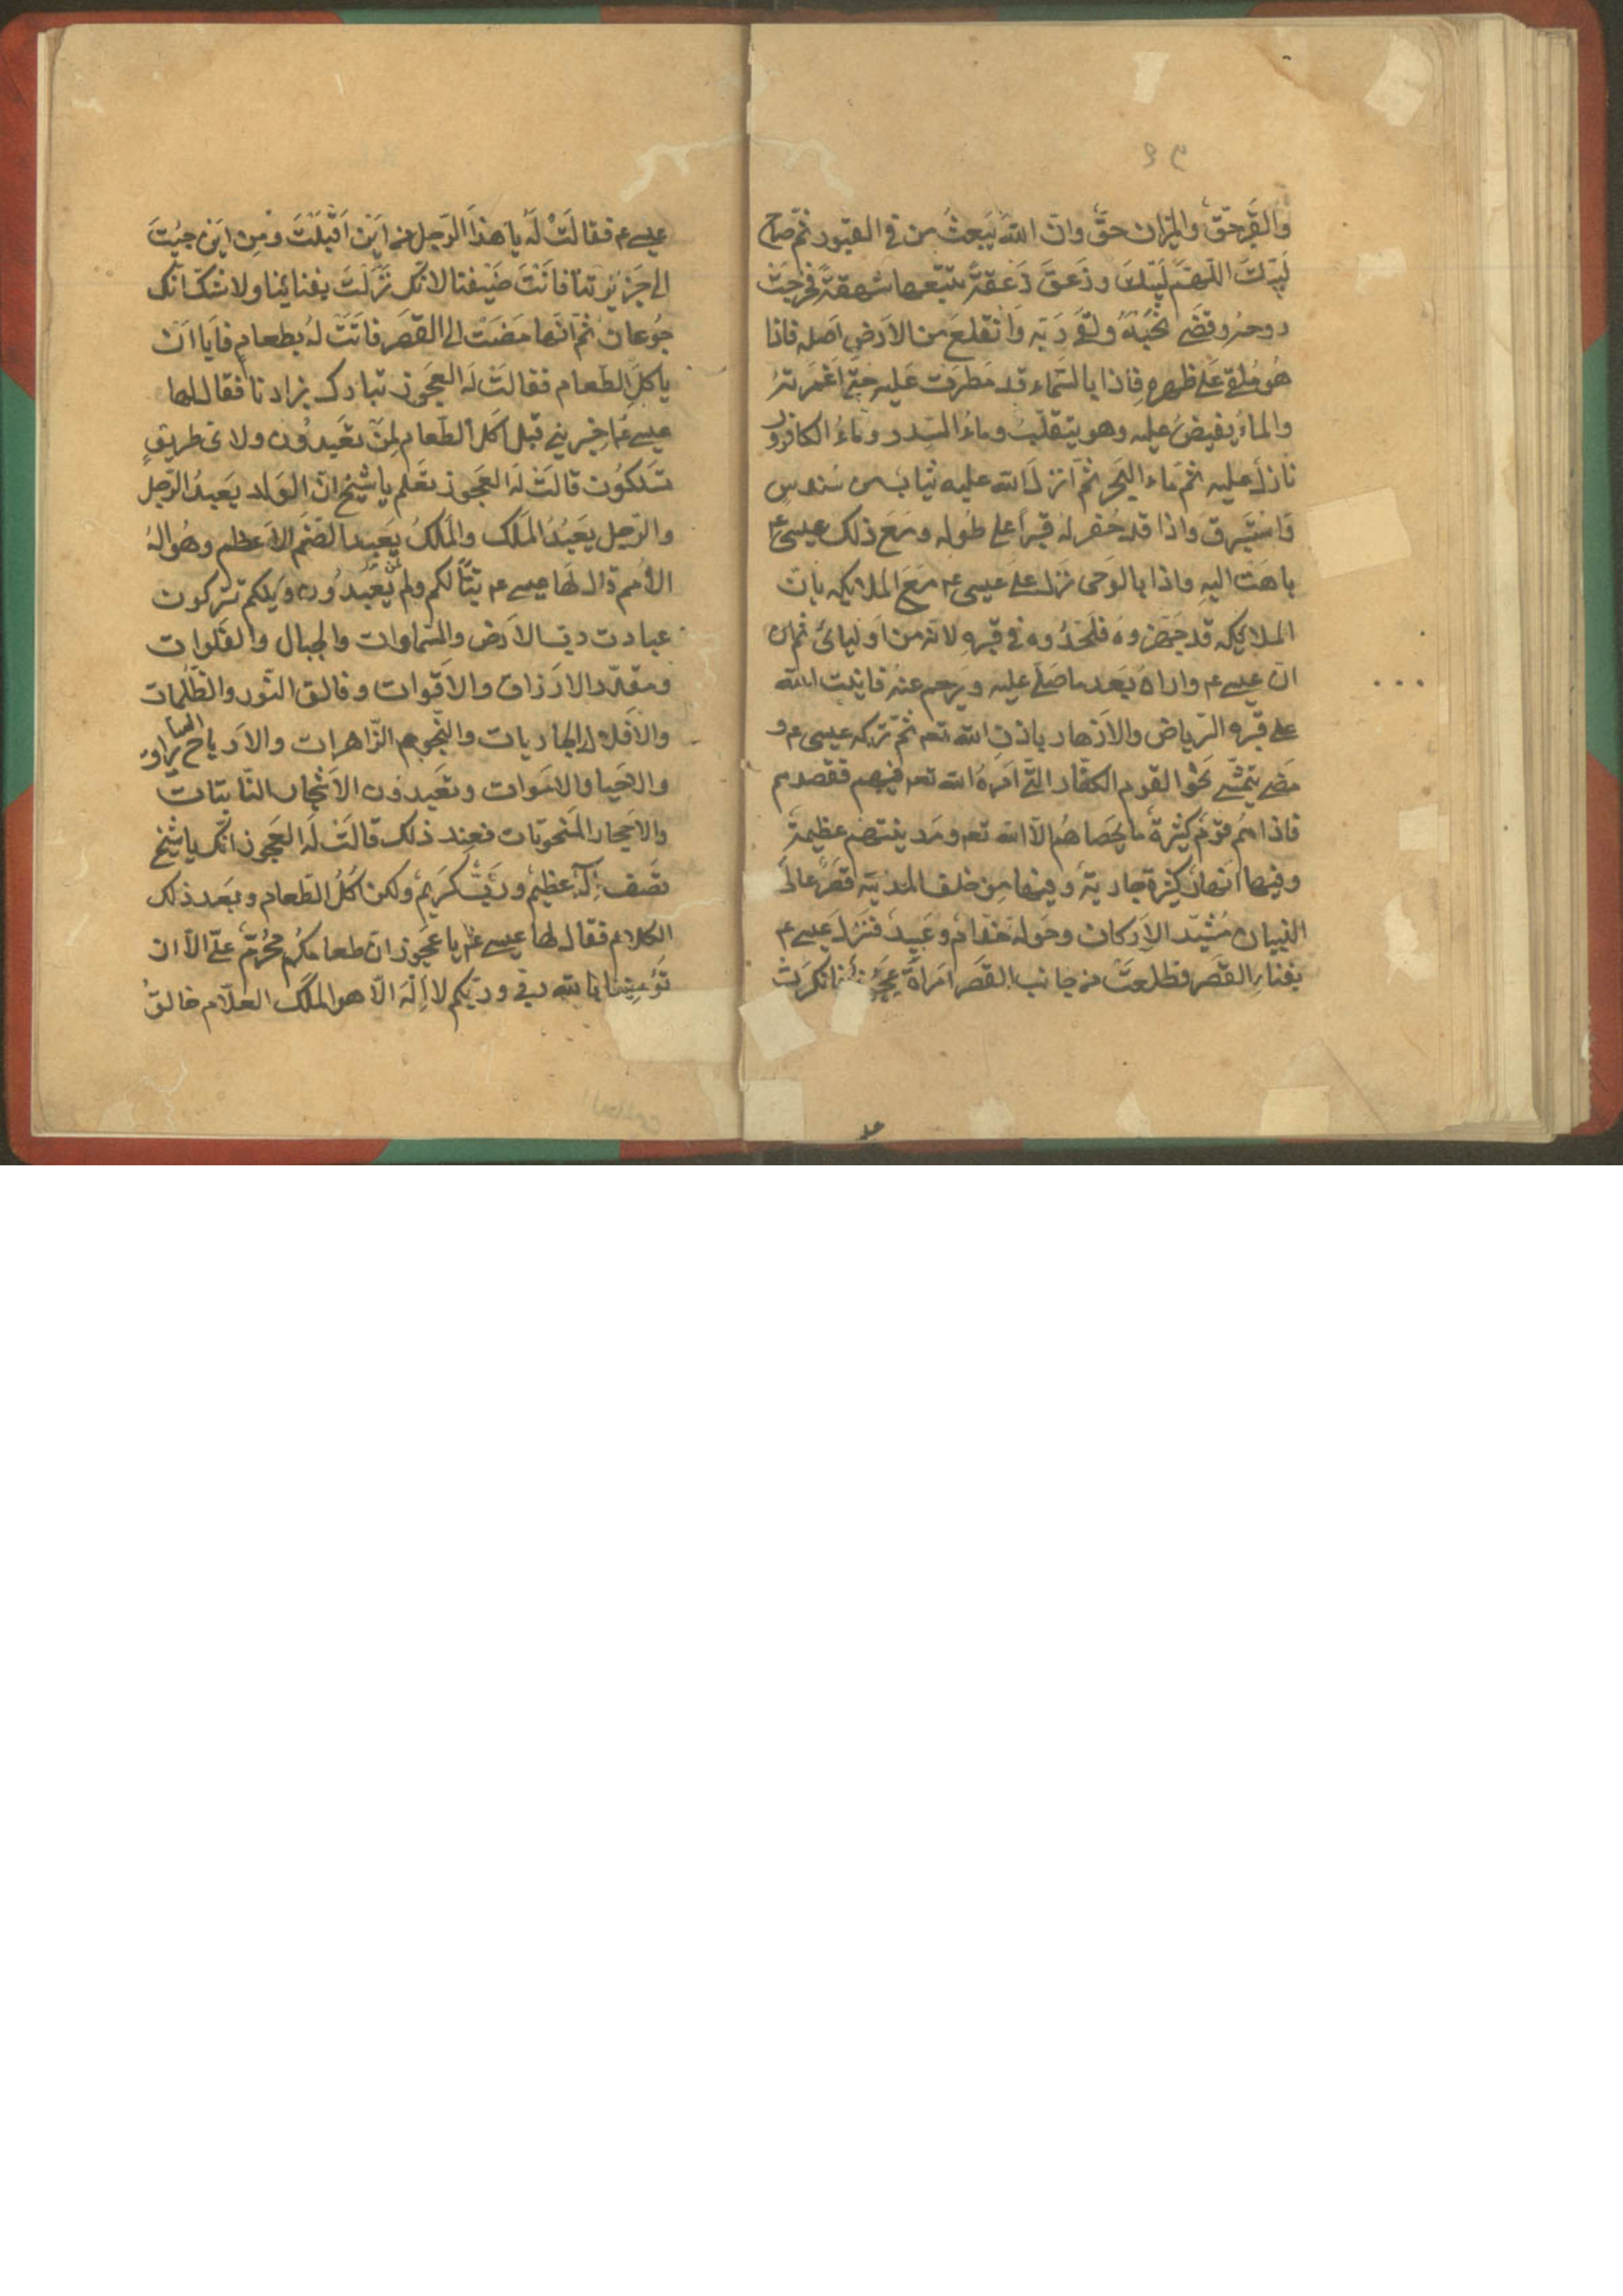 والقبر حقّ والميزان حقّ وان الله يبعث من في القبور ثم صاح
لبيك اللهم لبيك وزعق زعقة تتبعها شهقة فخرجت
روحه وقضى نحبه ولقي ربه وانقلع من الارض اصله فاذا
هو ملقى على ظهره فاذا بالسماء قد مطرت عليه حتى اغمرته
والماء يفيض عليه وهو يتقلب وماء السدر وماء الكافور
نازل عليه ثم ماء البحر ثم انزل الله عليه ثياب من سندس
واستبرق واذا قد حفر له قبرا على طوله ومع ذلك عيسى ع
باهت اليه واذا بالوحى نزل على عيسى ع مع الملايكه بان
الملايكه قد جهزوه فلحدوه في قبره لانه من اوليائى ثم ان
ان عيسى ع واراه بعد ما صلى عليه ويرحم عنه فانبت الله
على قبره الرياض والازهار باذن الله تعم ثم تركه عيسى ع و
مضى يتمشى نحو القوم الكفار التى امره الله تعم فيهم فقصدهم
فاذا هم قوم كثيرة ما يحصاهم الا الله تعم ومدينتهم عظيمة
وفيها انهار كثيرة جارية وفيها من خلف المدينه قصر عالى
البنيان مشيد الاركان وحوله خدام وعبيد فنزل عيسى ع
بفناء القصر فطلعت من جانب القصر امراة عجوز فانكرت
عيسى ع فقالت له يا هذا الرجل من اين اقبلت ومن اين جيت
الى جزيرتنا فانت ضيفنا لانك نزلت بفنائنا ولا شك انك
جوعان ثم انها مضت الى القصر فاتت له بطعام فايا ان
ياكل الطعام فقالت له العجوز تبارك بزادنا فقال لها
عيسى ع اخبريني قبل اكل الطعام لمن تعبدون ولاى طريق
تسلكون قالت له العجوز تعلم يا شيخ ان الولد يعبد الرجل
والرجل يعبد الملك والملك يعبد الصنم الاعظم وهو اله
الامم قال لها عيسى ع تبّا لكم ولمن تعبدون ويلكم تركون
عبادت ربّ الارض والسماوات والجبال والفلوات
ومقدر الارزاق والاقوات وفالق النور والظلمات
والافلاك الجاريات والنجوم الزاهرات والارياح
والاحيا والاموات وتعبدون الاشجار النابتات
والاحجار المنحوتات فعند ذلك قالت له العجوز انك يا شيخ
تصف اله عظيم وربّ كريم ولكن كل الطعام وبعد ذلك
الكلام فقال لها عيسى ع يا عجوز ان طعامكم محرم على الا ان
تؤمينا بالله ربي وربكم لا اله الا هو الملك العلام خالق